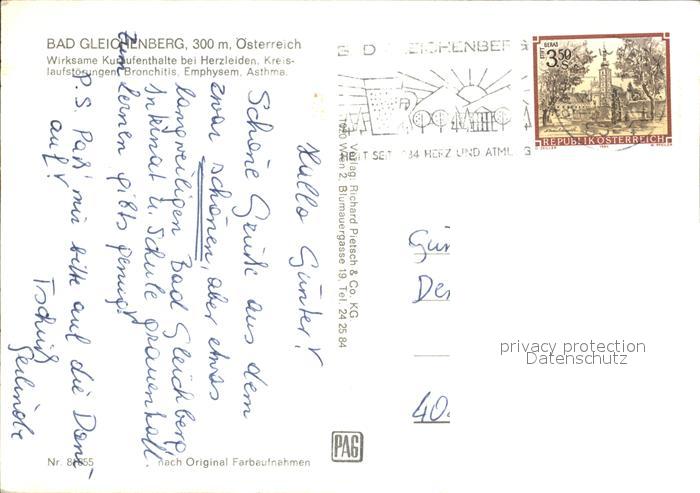 BAD GLEICHENBERG, 300 m, Österreich
Wirksame Kuraufenthalte bei Herzleiden, Kreis-
laufstörungen, Bronchitis, Emphysem, Asthma.
Hallo Günter!
Schöne Grüße aus dem
zwar schönen, aber etwas
langweiligen Bad Gleichberg.
Internat u. Schule grauenhaft.
Zum Lernen gibts genug!
P.S. Paß' mir bitte auf die Dani
auf!
Tschüß
Gerlinde
Nr. 81655
nach Original Farbaufnahmen
Verlag: Richard Pietsch & Co. KG
1020 Wien 2, Blumauergasse 19, Tel. 24 25 84
PAG
B D GLEICHENBERG
SEIT 834 HERZ UND ATMUNG
STIFT GERAS
3.50
S
REPUBLIK ÖSTERREICH
Gün
De
40.
privacy protection
Datenschutz